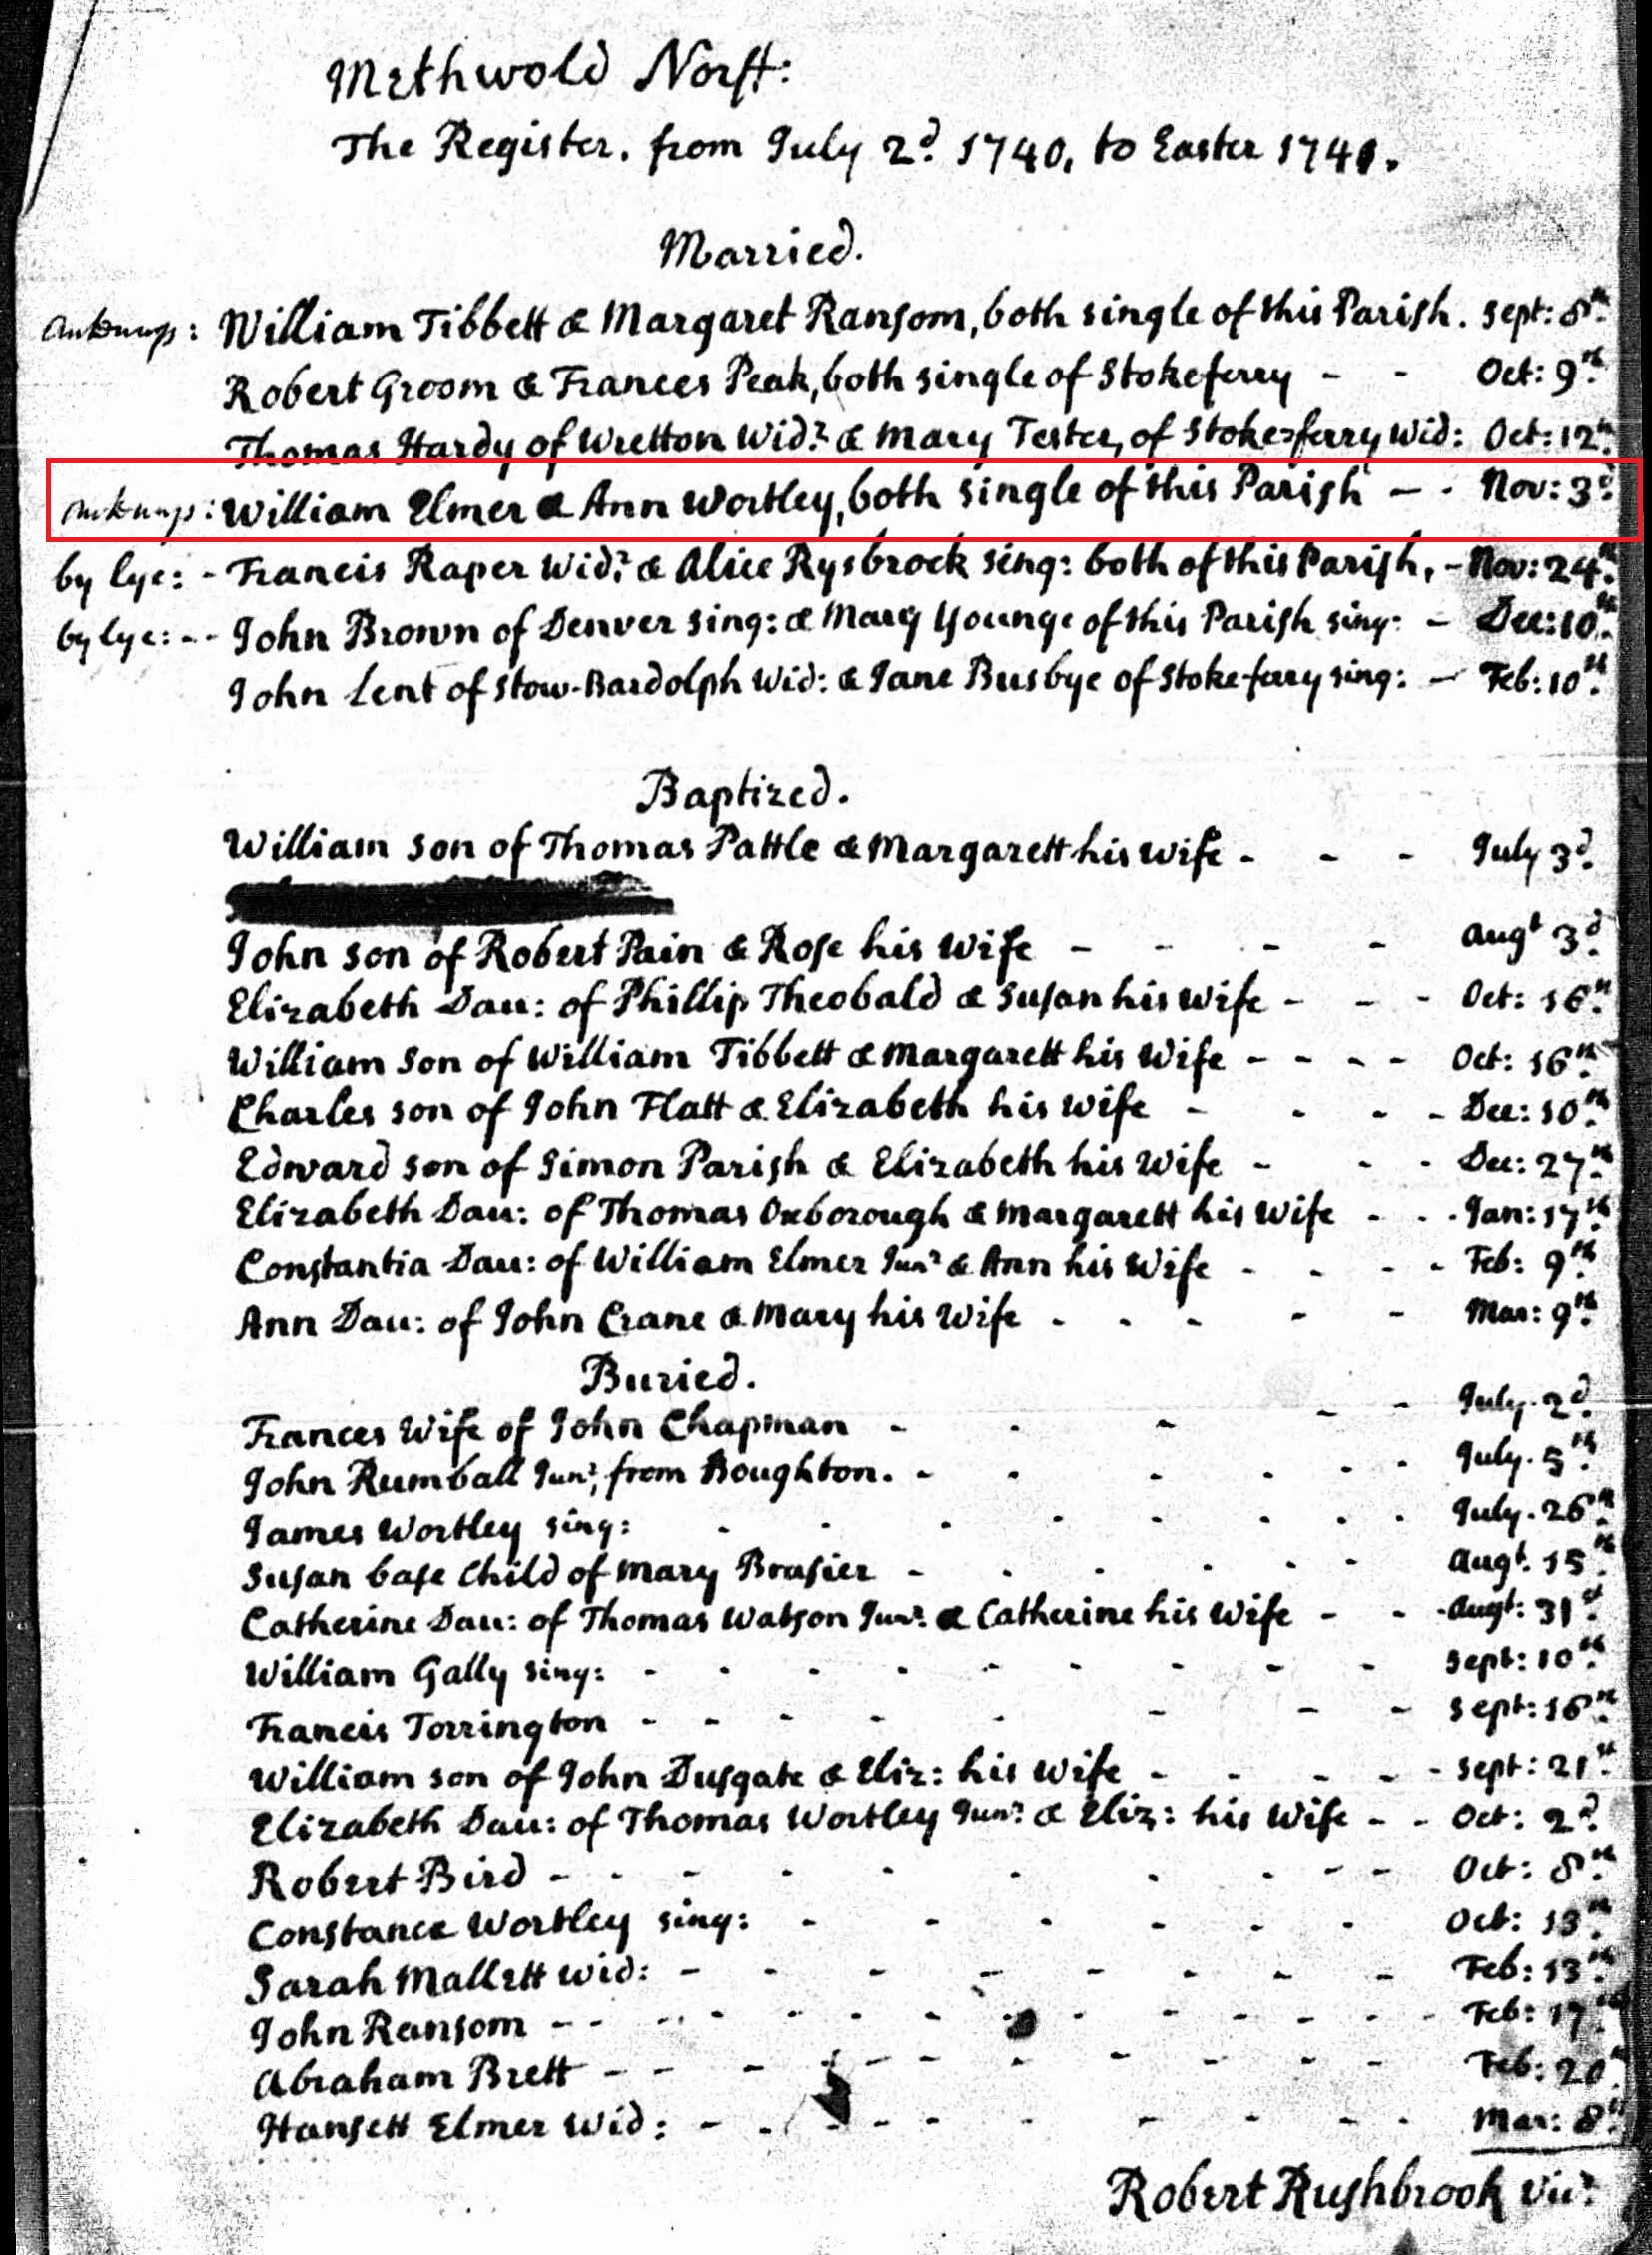 Methwold Norff:
The Register, from July 2d. 1740, to Easter 1741.
Married.
William Tibbett & Margaret Ransom, both single of this Parish. Sept: 8th.
Robert Groom & Frances Peak, both single of Stokeferry - - Oct: 9th.
Thomas Hardy of Wretton Widr. & Mary Tester, of Stoke-ferry Wid: Oct: 12th.
William Elmer & Ann Wortley, both single of this Parish - - Nov: 3d.
by lyc: - Francis Raper Widr. & Alice Rysbrock sing: both of this Parish, - Nov: 24th.
by lyc: - - John Brown of Denver sing: & Mary Younge of this Parish sing: - Dec: 10th.
John Lent of Stow-Bardolph Wid: & Jane Busbye of Stoke-ferry sing: - Feb: 10th.
Baptized.
William son of Thomas Pattle & Margarett his Wife - - - July 3d.
John son of Robert Pain & Rose his Wife - - - - Augt 3d.
Elizabeth Dau: of Phillip Theobald & Susan his Wife - - - Oct: 16th.
William Son of William Tibbett & Margarett his Wife - - - - Oct: 16th.
Charles son of John Flatt & Elizabeth his Wife - - - - Dec: 10th.
Edward son of Simon Parish & Elizabeth his Wife - - - Dec: 27th.
Elizabeth Dau: of Thomas Oxborough & Margarett his Wife - - - Jan: 17th.
Constantia Dau: of William Elmer Junr. & Ann his Wife - - - - Feb: 9th.
Ann Dau: of John Crane & Mary his Wife - - - - - Mar: 9th.
Buried.
Frances Wife of John Chapman - - - - - July. 2d.
John Rumball Junr, from Boughton. - - - - - July. 5th.
James Wortley sing: - - - - - - - - July. 26th.
Susan base Child of Mary Brasier - - - - - - Augt. 15th.
Catherine Dau: of Thomas Watson Junr. & Catherine his Wife - - - Augt: 31st.
William Gally sing: - - - - - - - - - Sept: 10th.
Francis Torrington - - - - - - - - Sept: 16th.
William son of John Dusgate & Eliz: his Wife - - - - - Sept: 21st.
Elizabeth Dau: of Thomas Wortley Junr. & Eliz: his Wife - - Oct: 2d.
Robert Bird - - - - - - - - - - Oct: 8th.
Constance Wortley sing: - - - - - - Oct: 13th.
Sarah Mallett Wid: - - - - - - - - Feb: 13th.
John Ransom - - - - - - - - - - - - Feb: 17th.
Abraham Brett - - - - - - - - - - - Feb: 20th.
Hansett Elmer Wid: - - - - - - - - - Mar: 8th.
Robert Rushbrook Vicr.